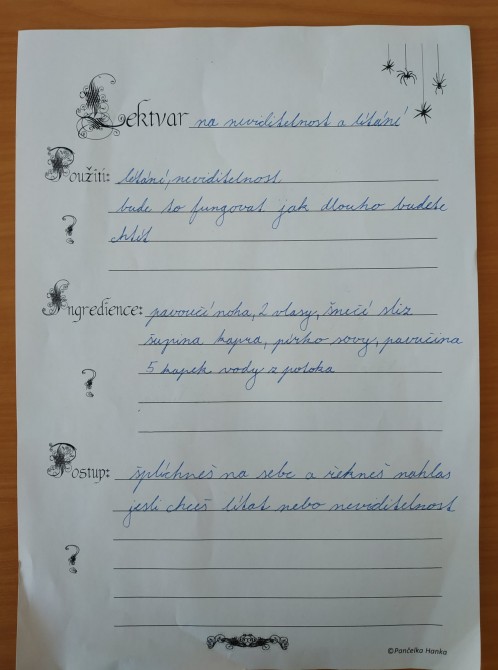 Lektvar na neviditelnost a lítání
Použití: lítání, neviditelnost
bude to fungovat jak dlouho budete
? chtít
Ingredience: pavoučí noha, 2 vlasy, šnečí sliz
šupina kapra, pírko sovy, pavučina
? 5 kapek vody z potoka
Postup: šplíchneš na sebe a řekneš nahlas
jestli chceš lítat nebo neviditelnost
?
©Pančelka Hanka